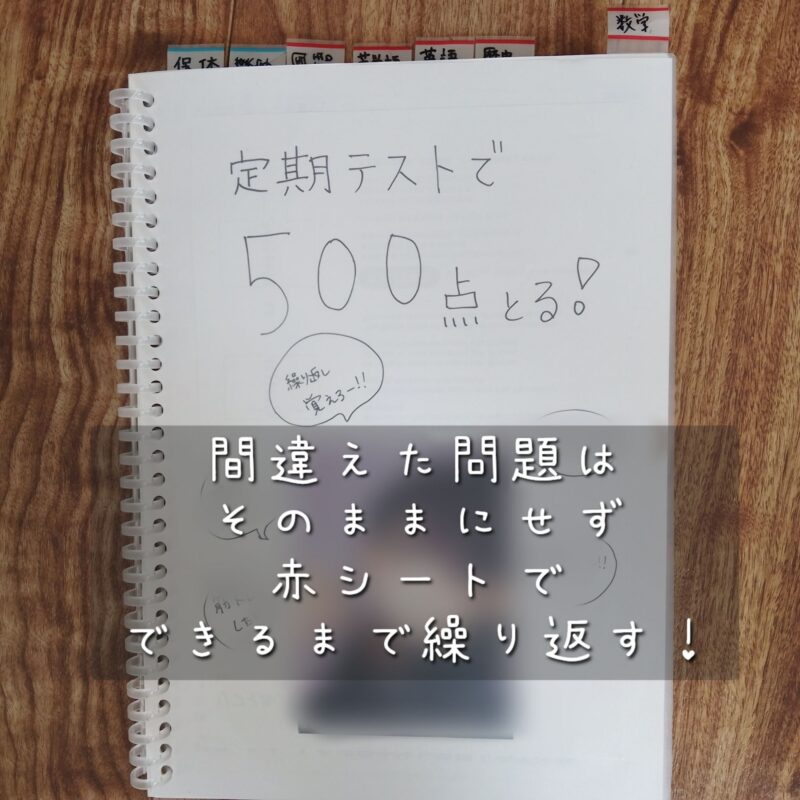 数学
保体
英語
歴史
定期テストで
500点とる!
繰り返し
覚えろー!!
間違えた問題は
そのままにせず
赤シートで
できるまで繰り返す!
!!